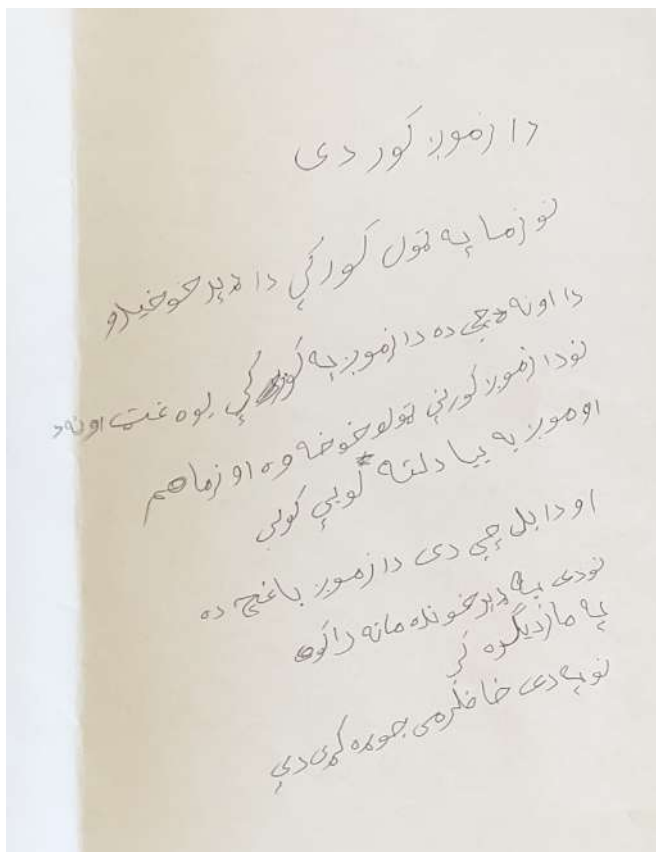 دا زموږ کور دی
نو زما په ټول کور کې دا ډېر خوخیدو
دا اونه چې ده دا زموږ په کور کې یوه غټ اونه د
نو دا زموږ کورنۍ ټولو خوخه وه او زما هم
او موږ به بیا دلته لوبې کولې
او دا بل چې دی دا زموږ باغچ ده
نو دی به ډېر خونده مانه راکوه
په مازدیګره کې
نو په دی خاطر می جوړه کړی دې